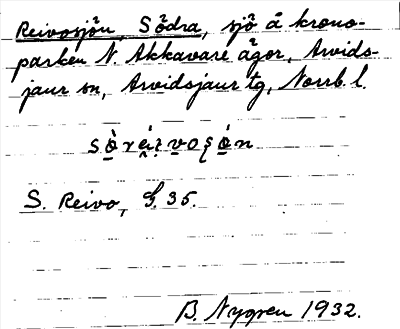 Reivosjön, Södra, sjö å krono-
parken N. Akkavare ägor, Arvids-
jaur sn, Arvidsjaur tg, Norrb. l.
S. Reivo, G. 35.
B. Nygren 1932.